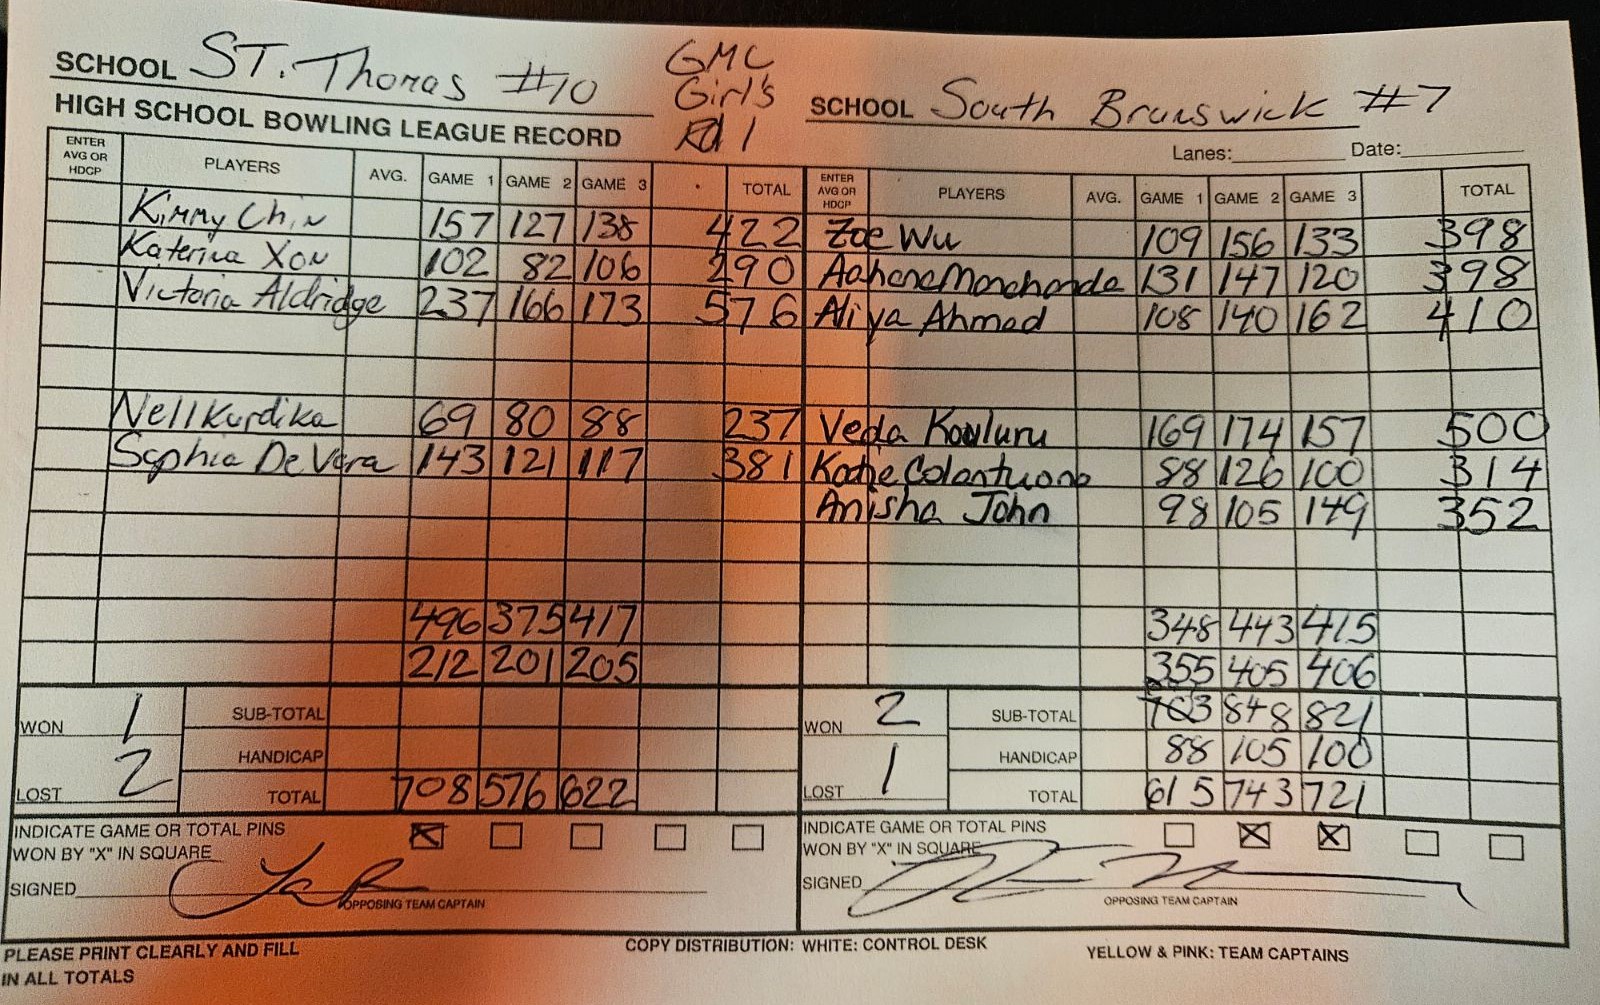 SCHOOL ST. Thomas #10
GMC
Girl's
Rd 1
SCHOOL South Brunswick #7
HIGH SCHOOL BOWLING LEAGUE RECORD
Lanes: Date:
ENTER AVG OR HDCP PLAYERS AVG. GAME 1 GAME 2 GAME 3 TOTAL ENTER AVG OR HDCP PLAYERS AVG. GAME 1 GAME 2 GAME 3 TOTAL
Kimmy Chin 157 127 138 422 Zoe Wu 109 156 133 398
Katerina Xon 102 82 106 290 131 147 120 398
Victoria Aldridge 237 166 173 576 Aliya Ahmad 108 140 162 410
Nell Kurdika 69 80 88 237 Veda Kouluru 169 174 157 500
Sophia De Vera 143 121 117 381 Katie Colantuono 88 126 100 314
Anisha John 98 105 149 352
496 375 417 348 443 415
212 201 205 355 405 406
WON 1 SUB-TOTAL WON 2 SUB-TOTAL 703 848 821
HANDICAP HANDICAP 88 105 100
LOST 2 TOTAL 708 576 622 LOST 1 TOTAL 615 743 721
INDICATE GAME OR TOTAL PINS X INDICATE GAME OR TOTAL PINS X X
WON BY "X" IN SQUARE WON BY "X" IN SQUARE
SIGNED SIGNED
OPPOSING TEAM CAPTAIN OPPOSING TEAM CAPTAIN
PLEASE PRINT CLEARLY AND FILL
IN ALL TOTALS
COPY DISTRIBUTION: WHITE: CONTROL DESK YELLOW & PINK: TEAM CAPTAINS